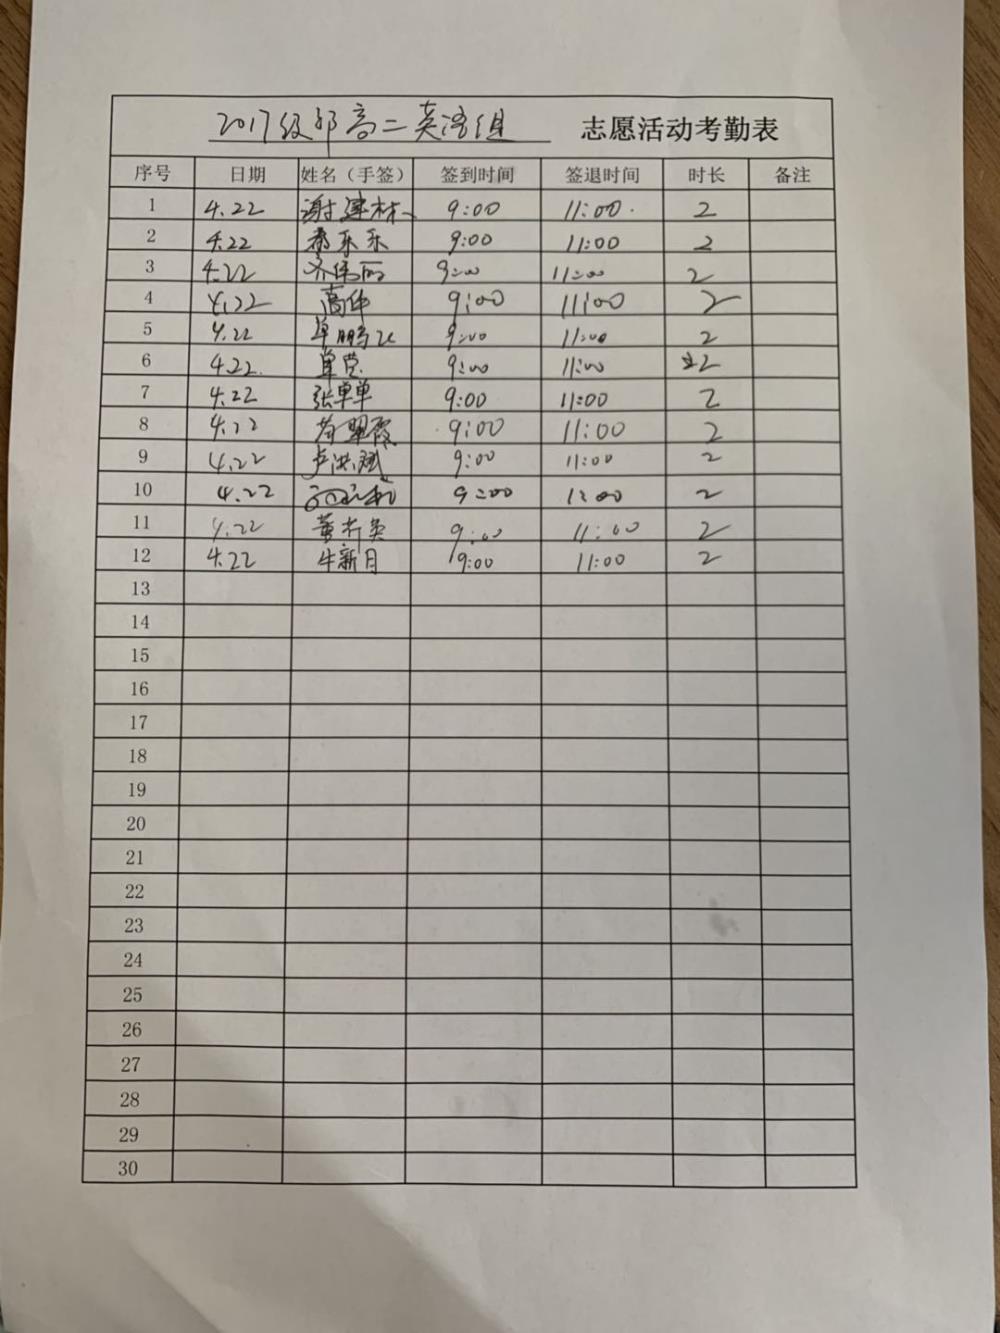 2017级部高二英语组 志愿活动考勤表
序号 日期 姓名（手签） 签到时间 签退时间 时长 备注
1 4.22 谢建林 9:00 11:00 2
2 4.22 乐乐 9:00 11:00 2
3 4.22 齐伟丽 9:00 11:00 2
4 4.22 高伟 9:00 11:00 2
5 4.22 单鹏飞 9:00 11:00 2
6 4.22. 单莹 9:00 11:00 2
7 4.22 张单单 9:00 11:00 2
8 4.22 翠霞 9:00 11:00 2
9 4.22 卢洪斌 9:00 11:00 2
10 4.22 9:00 2
11 4.22 董 英 9:00 11:00 2
12 4.22 牛新月 9:00 11:00 2
13
14
15
16
17
18
19
20
21
22
23
24
25
26
27
28
29
30